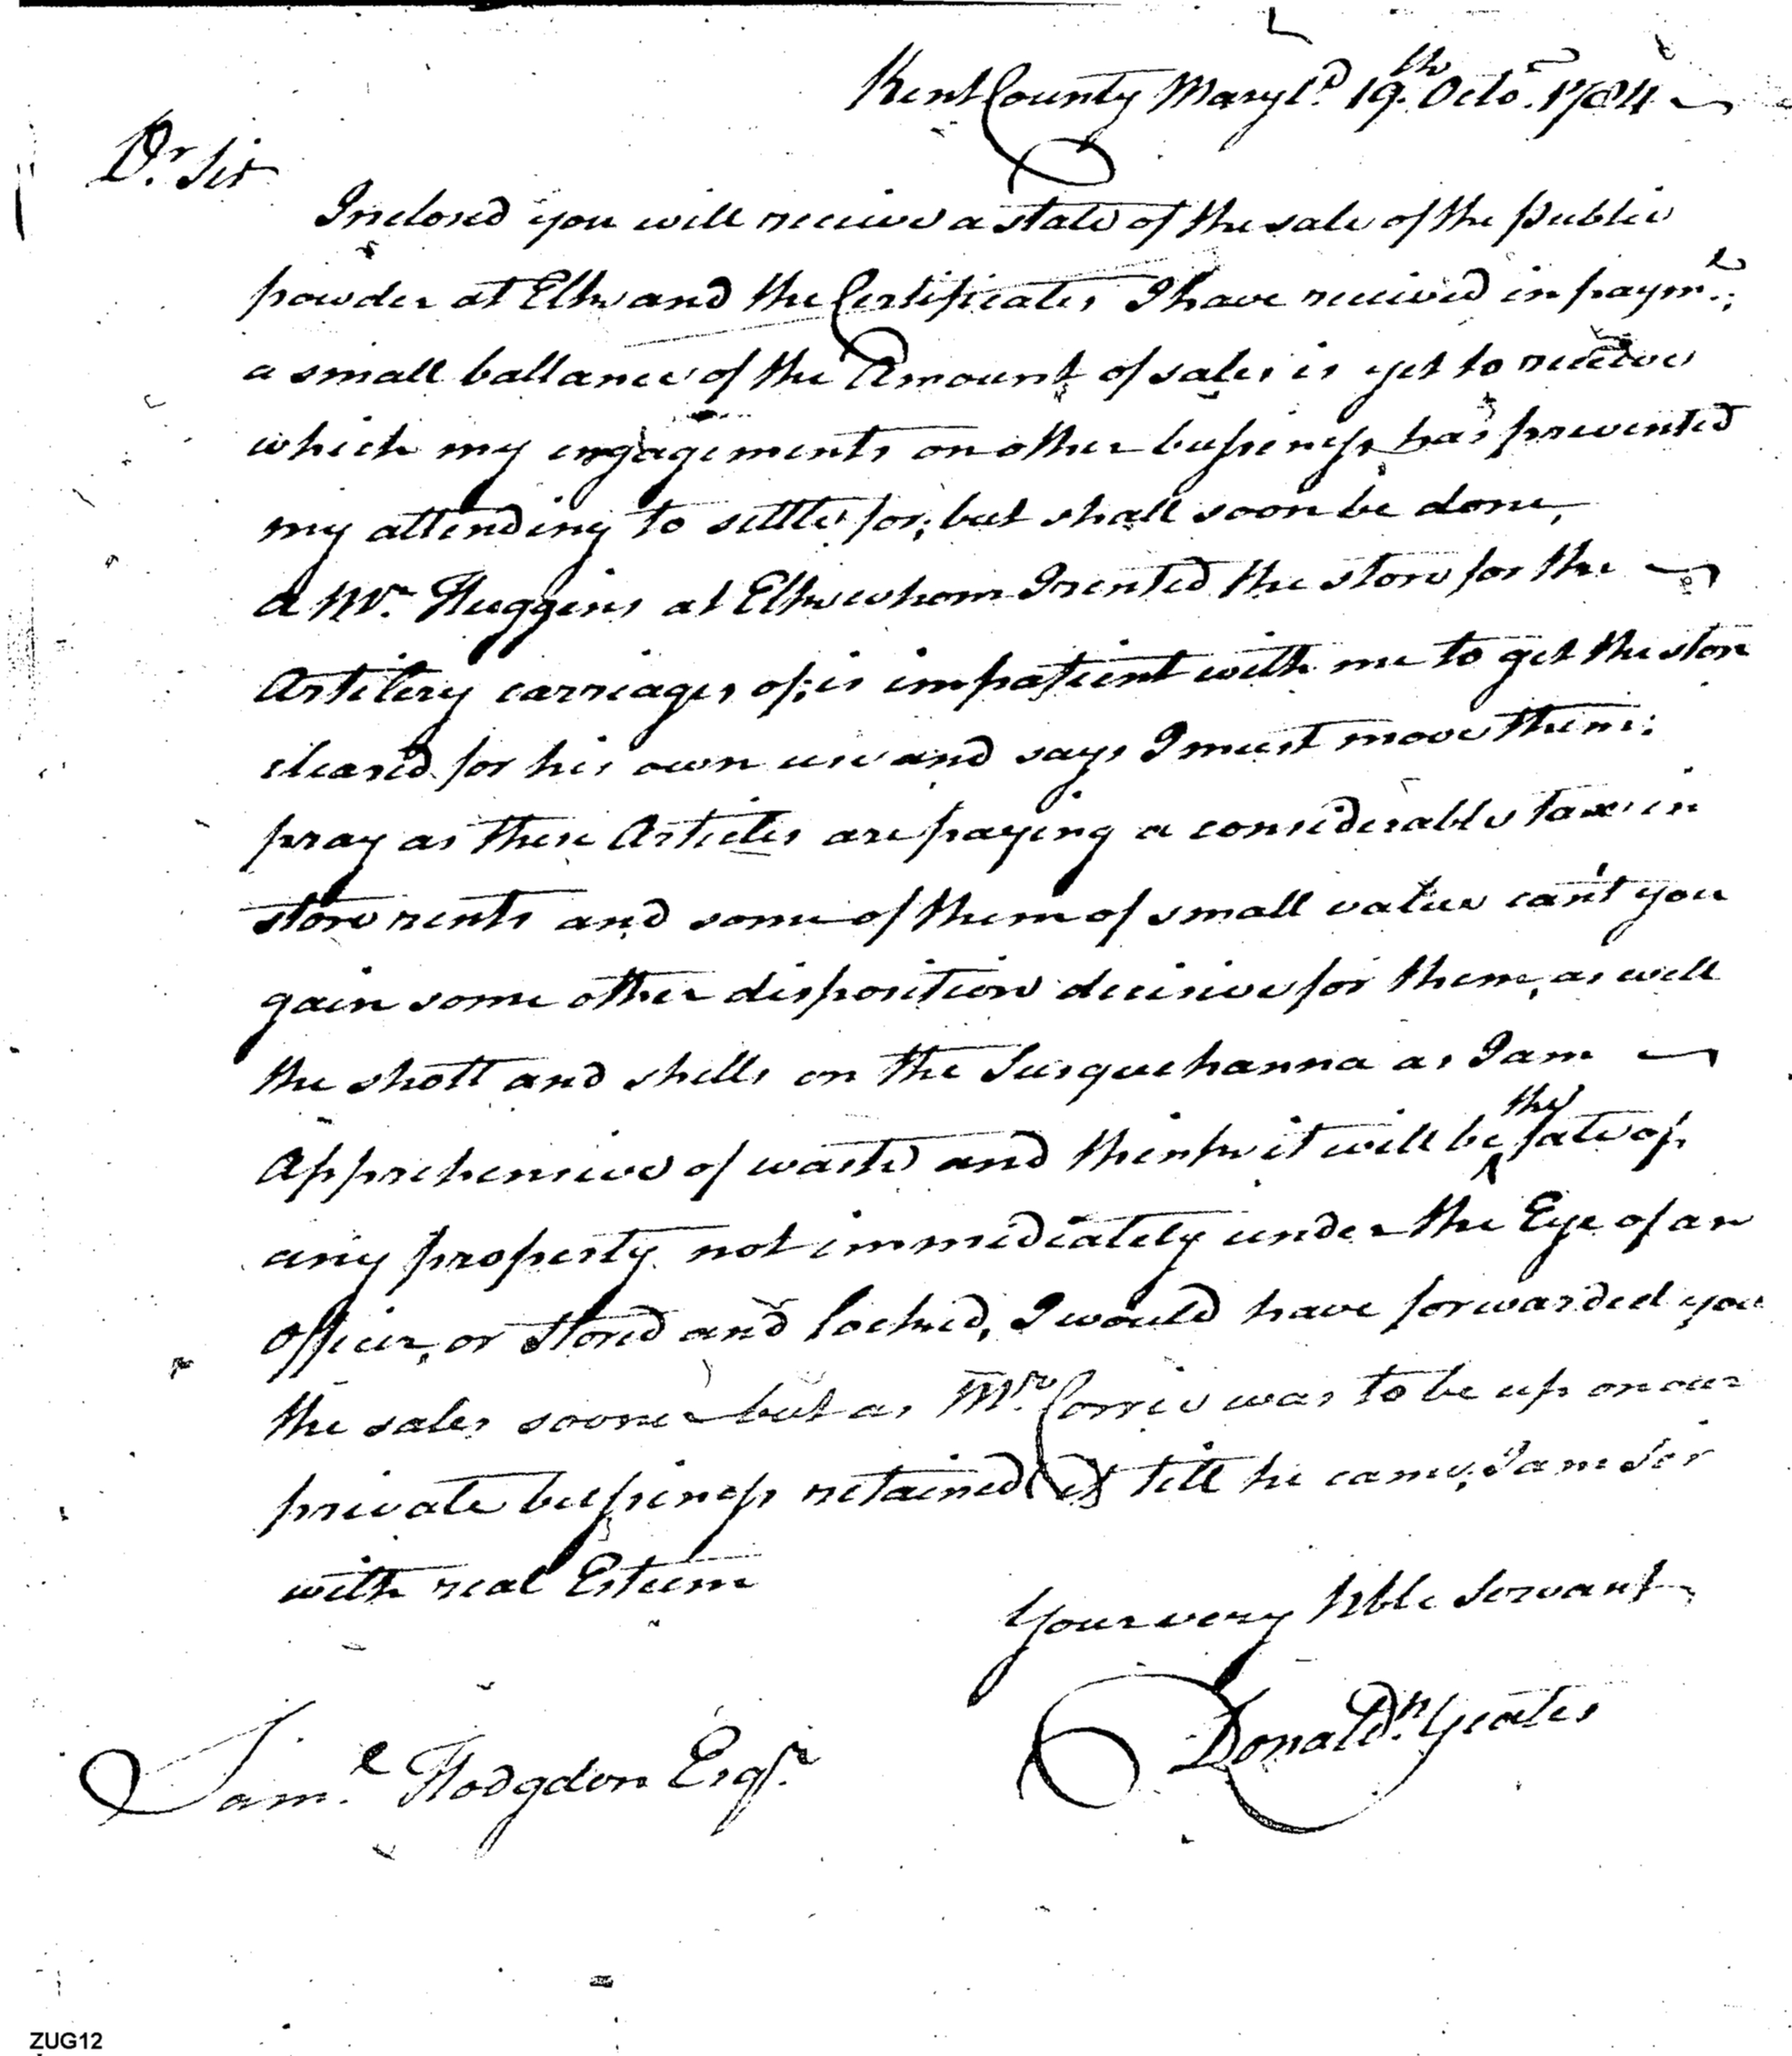 Kent County Maryld. 19th. Octo. 1784
Dr. Sir
Inclosed you will receive a state of the sale of the public
powder at Elk and the Certificates I have received in paymt.;
a small ballance of the Amount of sales is yet to receive
which my engagements on other bussiness has prevented
my attending to settle for; but shall soon be done,
a Mr. Huggins at Elk whom I rented the store for the
Artilery carriages of; is impatient with me to get the store
cleared for his own use and says I must move them:
pray as these Articles are paying a considerable tax in
store rents and some of them of small value can't you
gain some other disposition decisive for them, as well
the shott and shells on the Susquehanna as I am
Apprehensive of waste and think it will be the fate of
any property not immediately under the Eye of an
officer, or stored and locked, I would have forwarded you
the sales sooner but as Mr. Corrie was to be up on our
private bussiness retained it till he came; I am Sir
with real Esteem
Your very hble Servant
Donaldn. Yeates
Saml. Hodgdon Esqr.
ZUG12